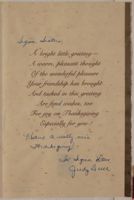 A bright little greeting—
A warm, pleasant thought
Of the wonderful pleasure
Your friendship has brought
And tucked in this greeting
Are fond wishes, too
For joy on Thanksgiving
Especially for you!
Have a really nice
Thanksgiving
Judy